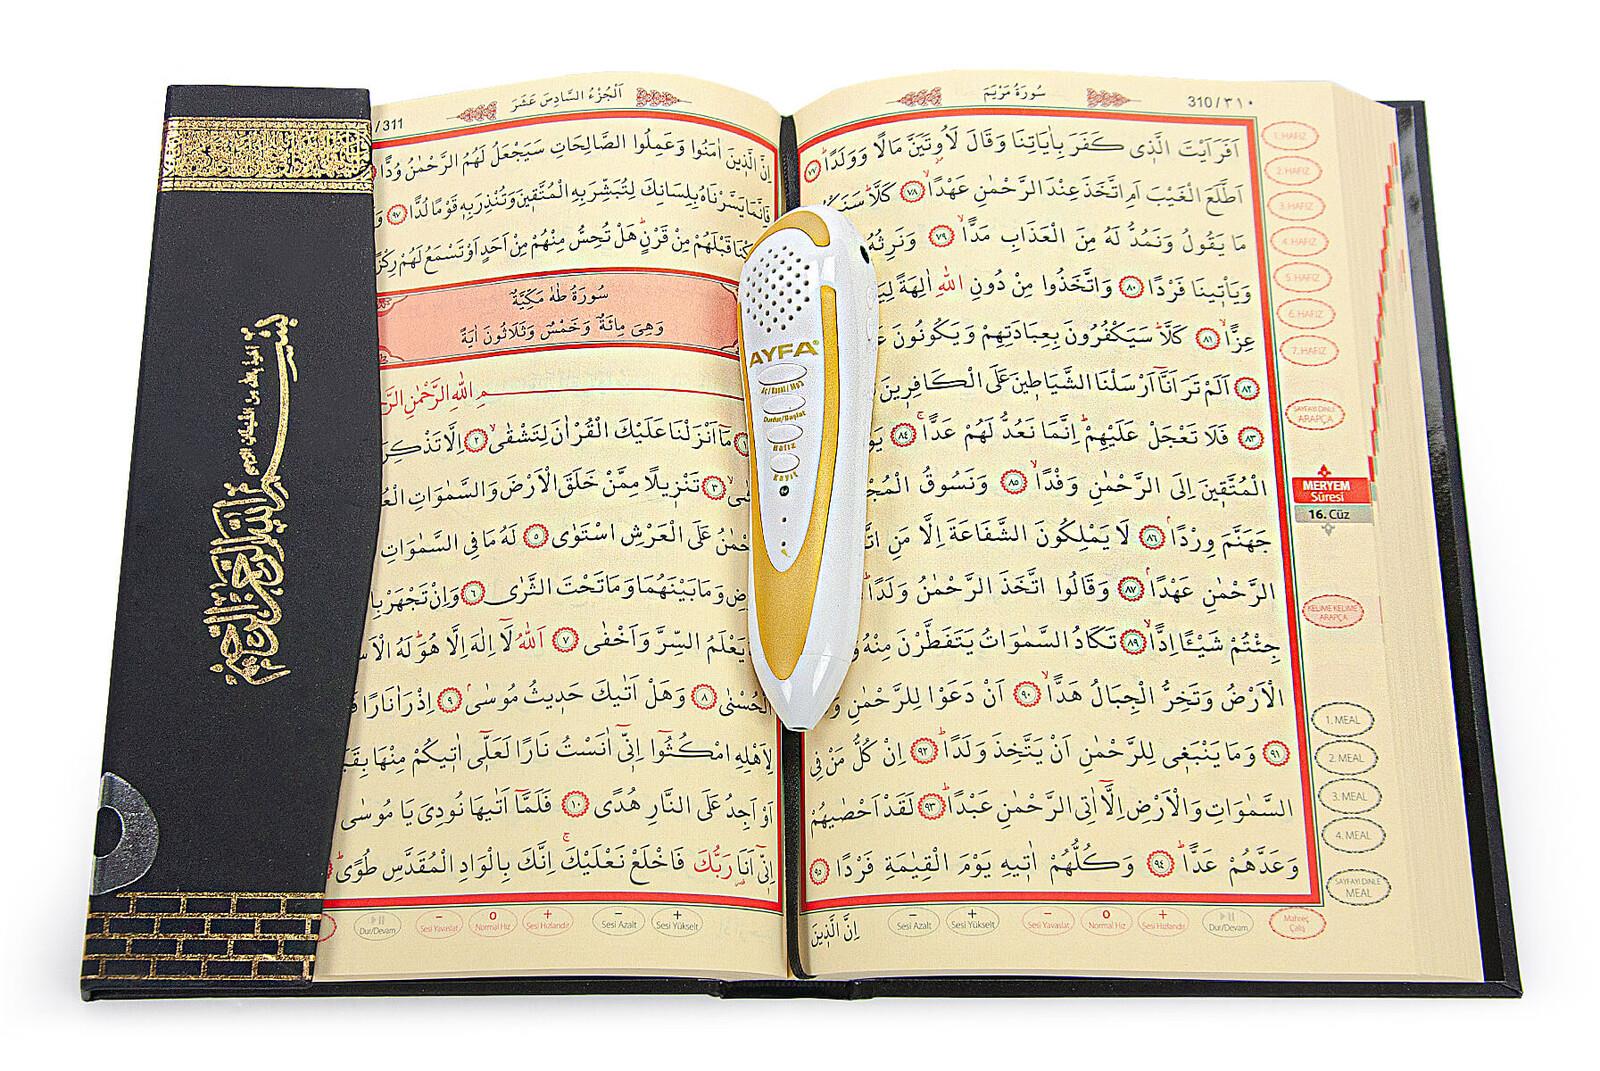 سُورَةُ مَرْيَمَ
310/٣١٠
اَفَرَاَيْتَ الَّذ۪ي كَفَرَ بِاٰيَاتِنَا وَقَالَ لَاُو۫تَيَنَّ مَالًا وَوَلَدًاۜ ٧٧
اَطَّلَعَ الْغَيْبَ اَمِ اتَّخَذَ عِنْدَ الرَّحْمٰنِ عَهْدًاۙ ٧٨ كَلَّاۜ
مَا يَقُولُ وَنَمُدُّ لَهُ مِنَ الْعَذَابِ مَدًّاۙ ٧٩ وَنَرِثُهُ
وَيَأْت۪ينَا فَرْدًا ٨٠ وَاتَّخَذُوا مِنْ دُونِ اللّٰهِ اٰلِهَةً
عِزًّاۙ ٨١ كَلَّاۜ سَيَكْفُرُونَ بِعِبَادَتِهِمْ وَيَكُونُونَ
٨٢ اَلَمْ تَرَ اَنَّٓا اَرْسَلْنَا الشَّيَاط۪ينَ عَلَى الْكَافِر۪ينَ
٨٣ فَلَا تَعْجَلْ عَلَيْهِمْۜ اِنَّمَا نَعُدُّ لَهُمْ عَدًّاۚ ٨٤
الْمُتَّق۪ينَ اِلَى الرَّحْمٰنِ وَفْدًاۙ ٨٥ وَنَسُوقُ
جَهَنَّمَ وِرْدًاۢ ٨٦ لَا يَمْلِكُونَ الشَّفَاعَةَ اِلَّا مَنِ
الرَّحْمٰنِ عَهْدًاۢ ٨٧ وَقَالُوا اتَّخَذَ الرَّحْمٰنُ وَلَدًاۜ
جِئْتُمْ شَيْـًٔا اِدًّاۙ ٨٩ تَكَادُ السَّمٰوَاتُ يَتَفَطَّرْنَ مِنْهُ
الْاَرْضُ وَتَخِرُّ الْجِبَالُ هَدًّاۙ ٩٠ اَنْ دَعَوْا لِلرَّحْمٰنِ
٩١ وَمَا يَنْبَغ۪ي لِلرَّحْمٰنِ اَنْ يَتَّخِذَ وَلَدًاۜ ٩٢ اِنْ كُلُّ مَنْ فِي
السَّمٰوَاتِ وَالْاَرْضِ اِلَّٓا اٰتِي الرَّحْمٰنِ عَبْدًاۜ ٩٣ لَقَدْ اَحْصٰيهُمْ
وَعَدَّهُمْ عَدًّاۜ ٩٤ وَكُلُّهُمْ اٰت۪يهِ يَوْمَ الْقِيٰمَةِ فَرْدًا ٩٥
اِنَّ الَّذ۪ينَ
1. HAFIZ
2. HAFIZ
3. HAFIZ
4. HAFIZ
5. HAFIZ
6. HAFIZ
7. HAFIZ
SAYFAYI DİNLE
ARAPÇA
MERYEM
Sûresi
16. Cüz
KELİME KELİME
ARAPÇA
1. MEAL
2. MEAL
3. MEAL
4. MEAL
SAYFAYI DİNLE
MEAL
− Sesi Azalt
+ Sesi Yükselt
− Sesi Yavaşlat
o Normal Hız
+ Sesi Hızlandır
Dur/Devam
Mahreç
Çalış
اَلْجُزْءُ السَّادِسَ عَشَرَ
/311
اِنَّ الَّذ۪ينَ اٰمَنُوا وَعَمِلُوا الصَّالِحَاتِ سَيَجْعَلُ لَهُمُ الرَّحْمٰنُ وُدًّا
فَاِنَّمَا يَسَّرْنَاهُ بِلِسَانِكَ لِتُبَشِّرَ بِهِ الْمُتَّق۪ينَ وَتُنْذِرَ بِه۪ قَوْمًا لُدًّا ٩٧
قَبْلَهُمْ مِنْ قَرْنٍۜ هَلْ تُحِسُّ مِنْهُمْ مِنْ اَحَدٍ اَوْ تَسْمَعُ لَهُمْ رِكْزًا
سُورَةُ طٰهٰ مَكِّيَّةٌ
وَهِيَ مِائَةٌ وَخَمْسٌ وَثَلَاثُونَ اٰيَةً
اللّٰهِ الرَّحْمٰنِ
مَٓا اَنْزَلْنَا عَلَيْكَ الْقُرْاٰنَ لِتَشْقٰىۙ ٢ اِلَّا
٣ تَنْز۪يلًا مِمَّنْ خَلَقَ الْاَرْضَ وَالسَّمٰوَاتِ
عَلَى الْعَرْشِ اسْتَوٰى ٥ لَهُ مَا فِي السَّمٰوَاتِ
وَمَا بَيْنَهُمَا وَمَا تَحْتَ الثَّرٰى ٦ وَاِنْ تَجْهَرْ
يَعْلَمُ السِّرَّ وَاَخْفٰى ٧ اَللّٰهُ لَٓا اِلٰهَ اِلَّا هُوَۜ لَهُ
الْحُسْنٰى ٨ وَهَلْ اَتٰيكَ حَد۪يثُ مُوسٰىۢ ٩ اِذْ رَاٰ نَارًا
لِاَهْلِهِ امْكُـثُٓوا اِنّ۪ٓي اٰنَسْتُ نَارًا لَعَلّ۪ٓي اٰت۪يكُمْ مِنْهَا
اَوْ اَجِدُ عَلَى النَّارِ هُدًى ١٠ فَلَمَّٓا اَتٰيهَا نُودِيَ يَا مُوسٰى
اِنّ۪ٓي اَنَا۬ رَبُّكَ فَاخْلَعْ نَعْلَيْكَۚ اِنَّكَ بِالْوَادِ الْمُقَدَّسِ طُوًىۜ
Dur/Devam
− Sesi Yavaşlat
o Normal Hız
+ Sesi Hızlandır
− Sesi Azalt
+ Sesi Yükselt
AYFA®
Durdur/Başlat
Hafız
Kayıt